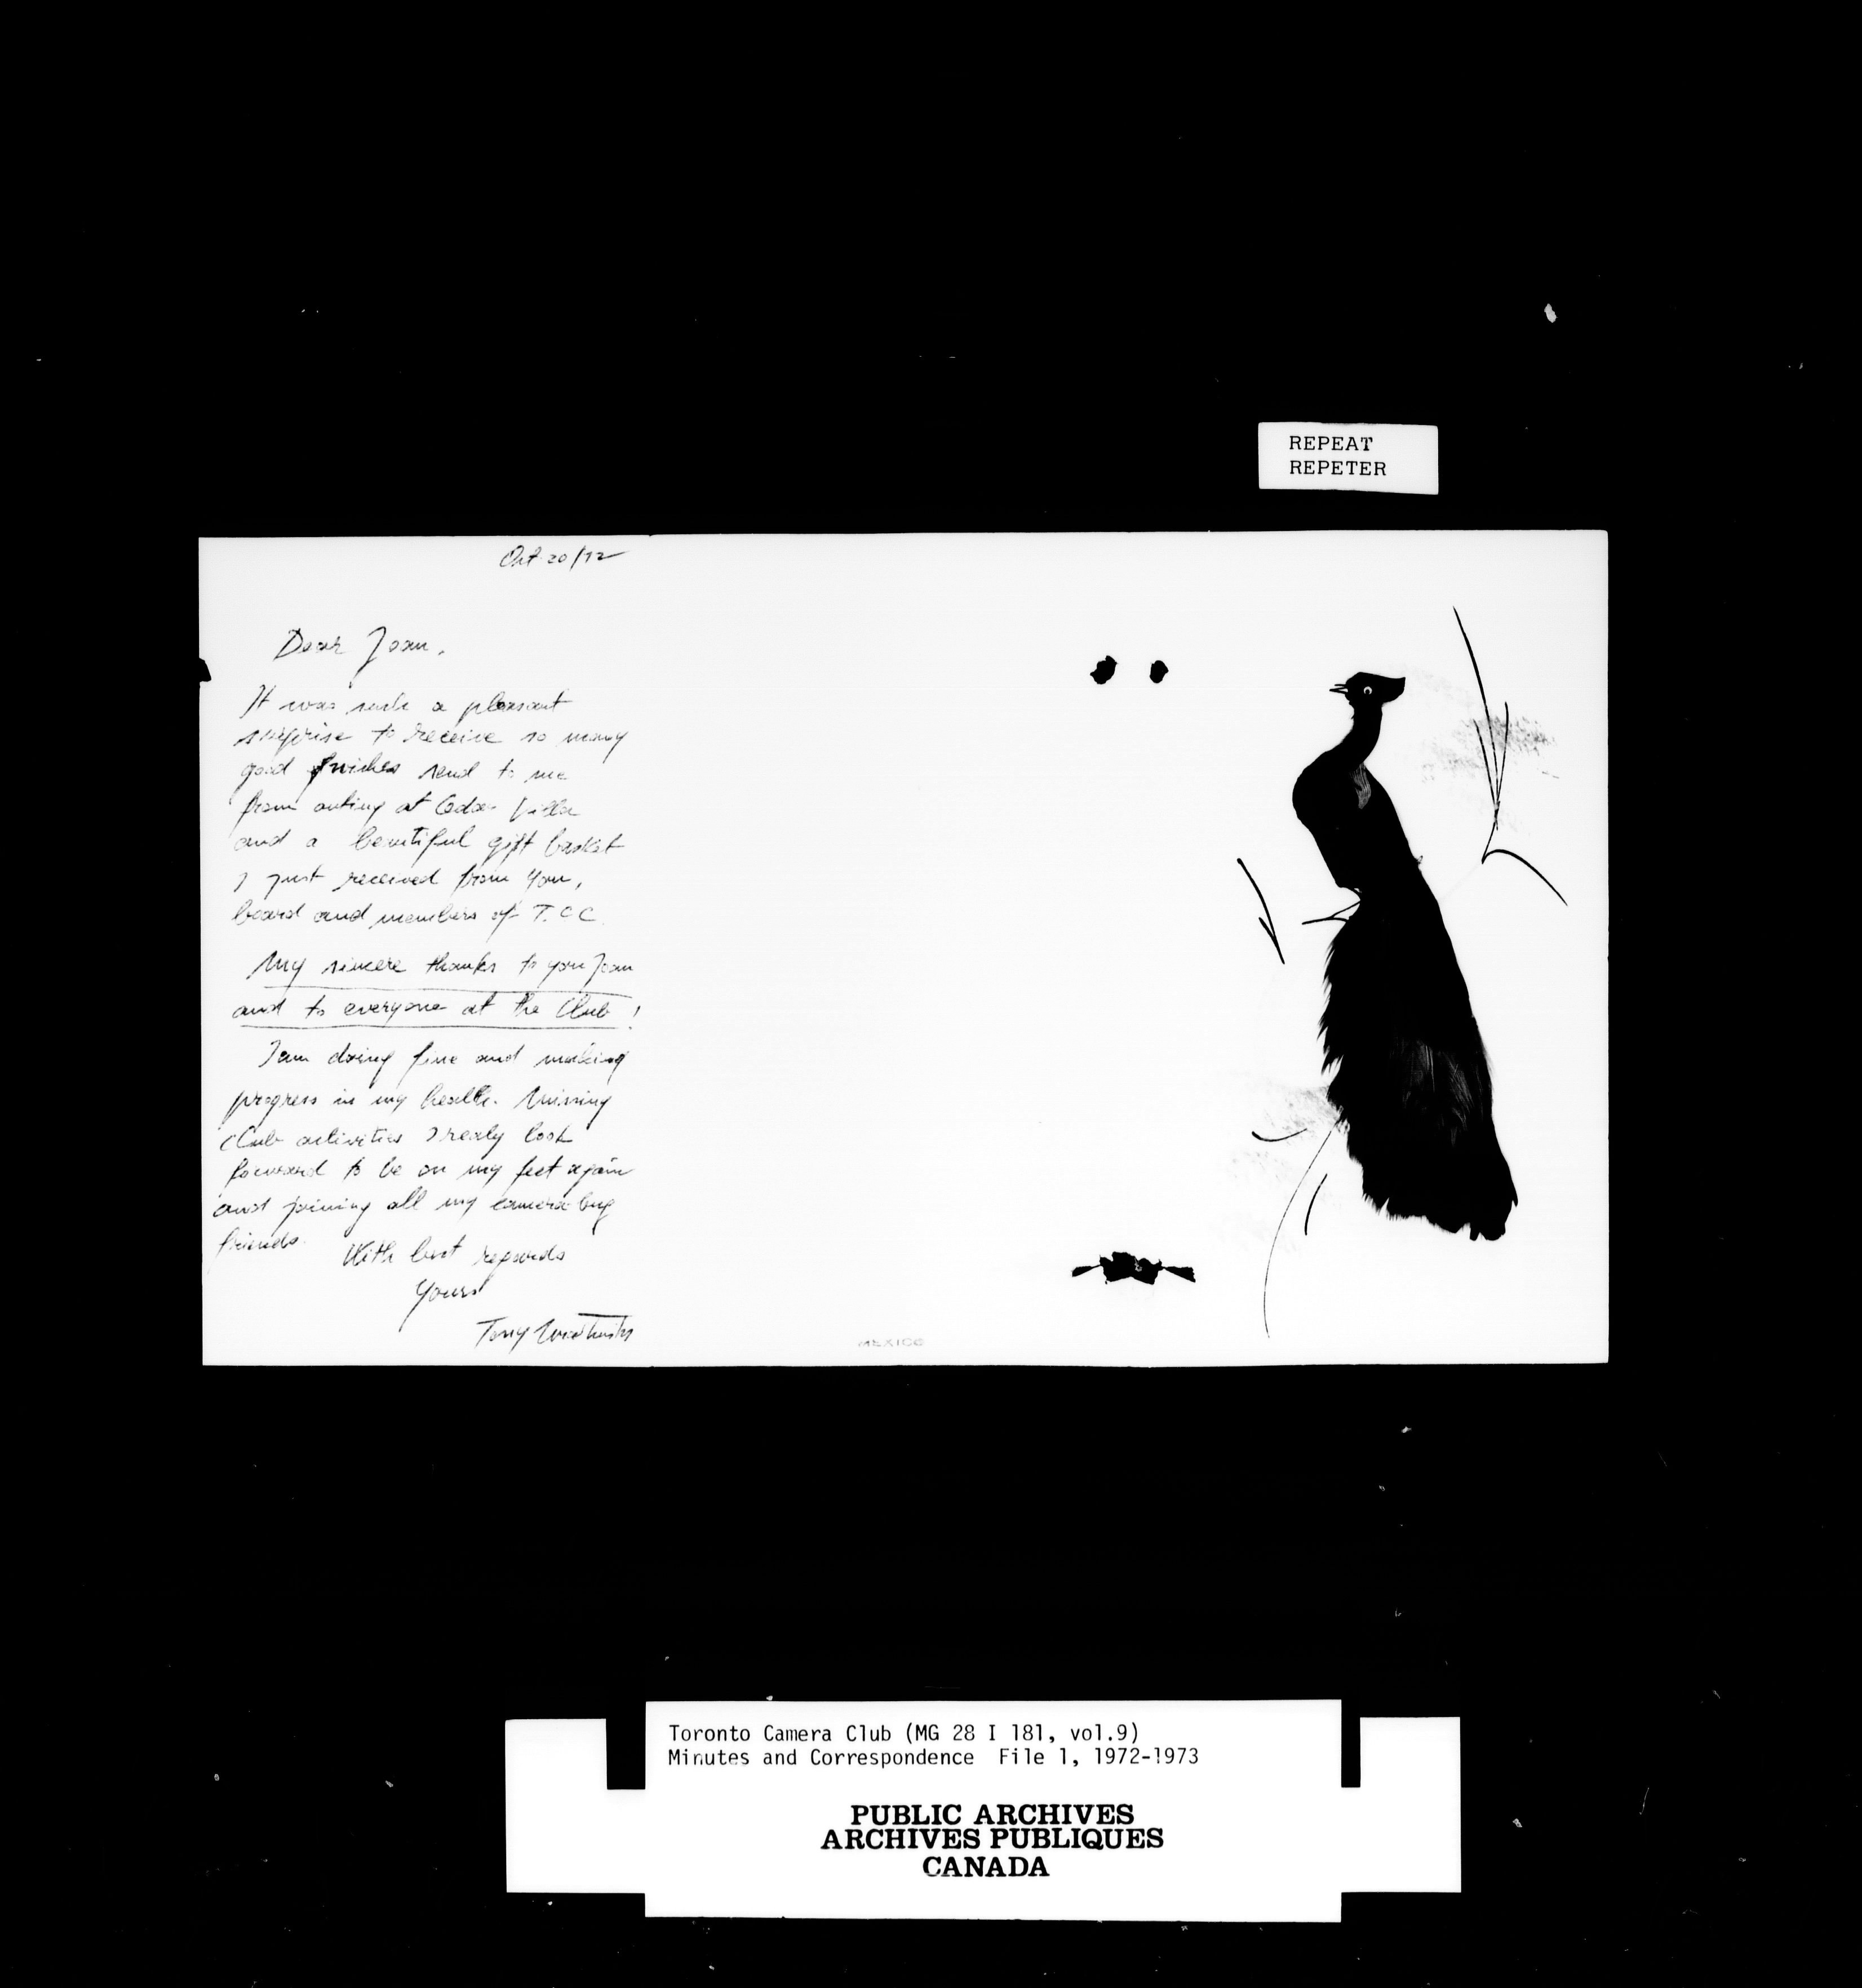 REPEAT
REPETER
Oct. 20/72
Dear Joan,
It was such a pleasant
surprise to receive so many
good wishes send to me
from outing at Cedar Villa
and a beautiful gift basket
I just received from You,
board and members of T.C.C.
My sincere thanks to you Joan
and to everyone at the Club!
I am doing fine and making
progress in my health. Missing
Club activities I realy look
forward to be on my feet again
and joining all my camera bug
friends.
With best regards
Yours
Tony
MEXICO
Toronto Camera Club (MG 28 I 181, vol.9)
Minutes and Correspondence File 1, 1972-1973
PUBLIC ARCHIVES
ARCHIVES PUBLIQUES
CANADA